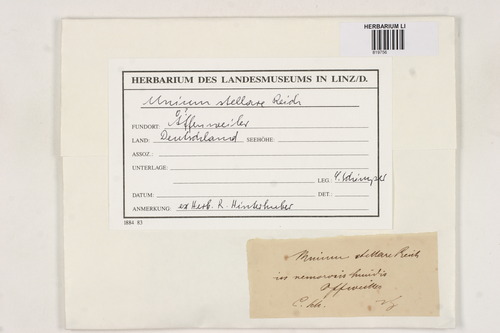 HERBARIUM LI
819756
HERBARIUM DES LANDESMUSEUMS IN LINZ/D.
Mnium stellare Reich
FUNDORT: Offenweiler
LAND: Deutschland SEEHÖHE:
ASSOZ.:
UNTERLAGE:
LEG.:
DATUM: DET.:
ANMERKUNG: ex Herb. R. Hinterhuber
I884 83
Mnium stellare Reich
in nemorosis humidis
Offweiler